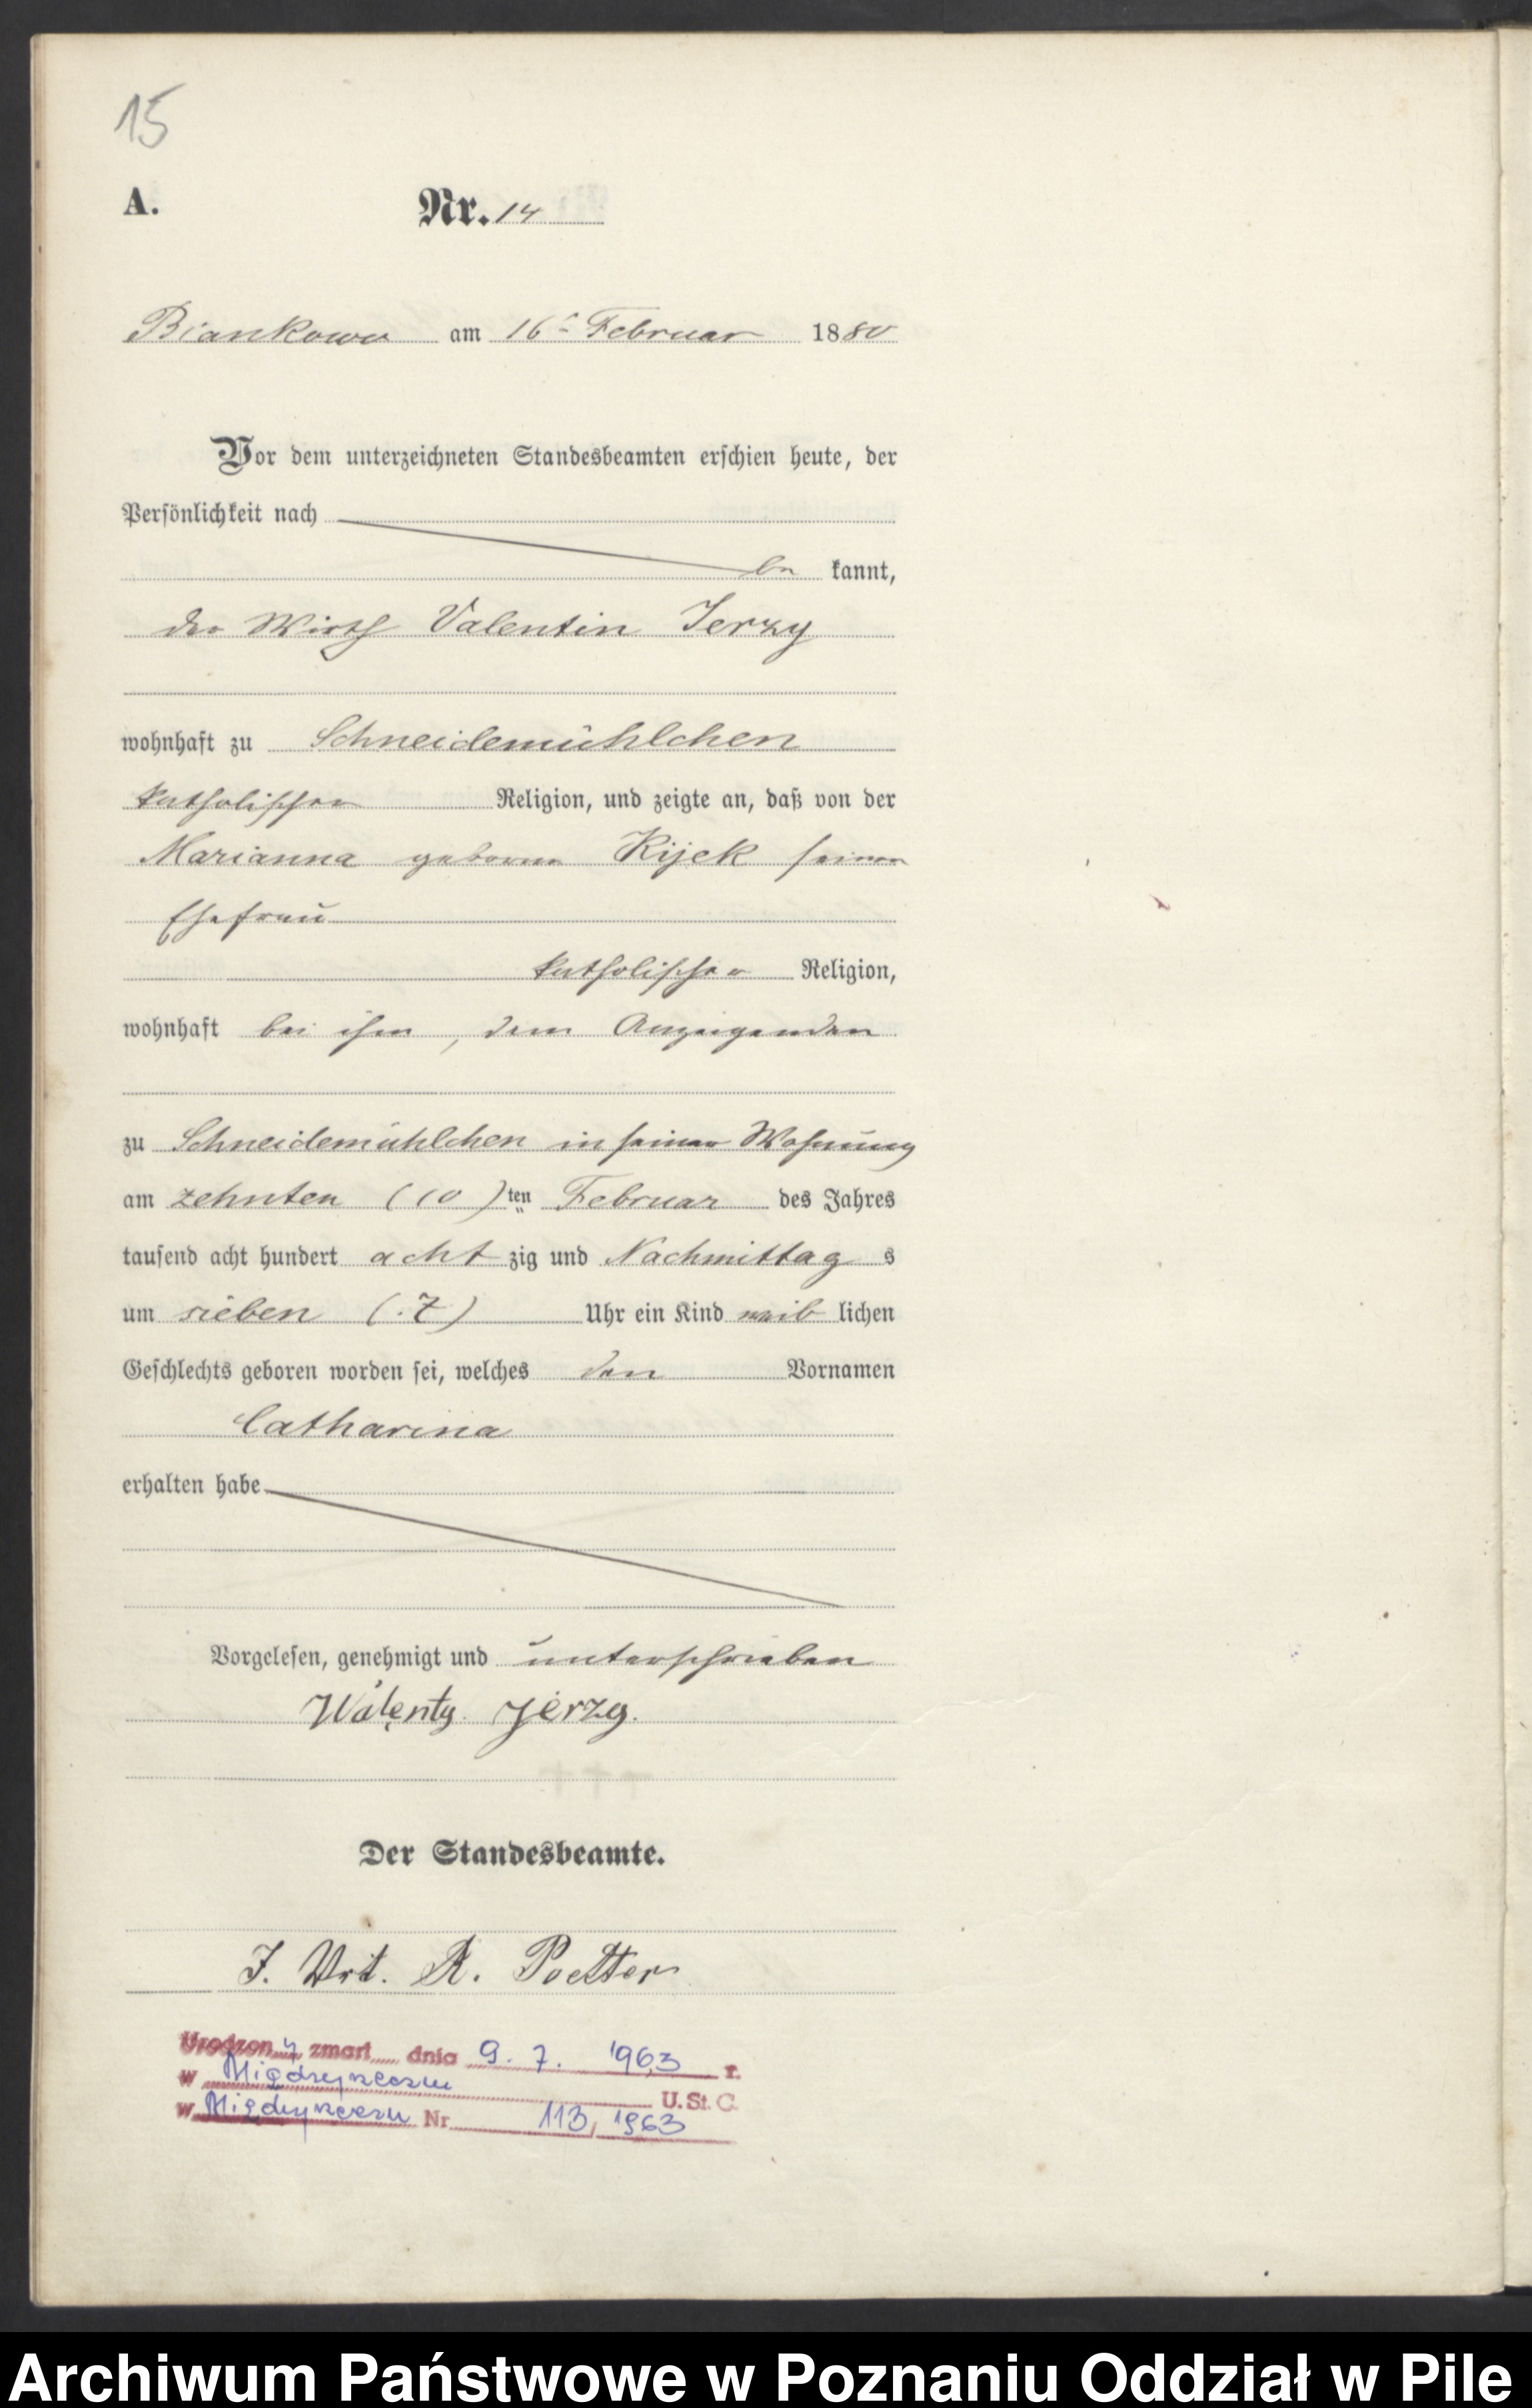 15
A. Nr. 14
Biankowo am 16t Februar 1880
Vor dem unterzeichneten Standesbeamten erschien heute, der
Persönlichkeit nach
be kannt,
der Wirth Valentin Jerzy
wohnhaft zu Schneidemühlchen
katholischer Religion, und zeigte an, daß von der
Marianna geborne Kijek seiner
Ehefrau
katholischer Religion,
wohnhaft bei ihm, dem Anzeigenden
zu Schneidemühlchen in seiner Wohnung
am zehnten (10) ten Februar des Jahres
tausend acht hundert acht zig und Nachmittag s
um sieben (7) Uhr ein Kind weib lichen
Geschlechts geboren worden sei, welches den Vornamen
Catharina
erhalten habe
Vorgelesen, genehmigt und unterschrieben
Walenty Jerzy.
Der Standesbeamte.
R. Poetter
Urodzony zmarł dnia 9. 7. 1963 r.
w Międzyrzeczu
U.St.C.
w Międzyrzeczu Nr 113/1963
Archiwum Państwowe w Poznaniu Oddział w Pile